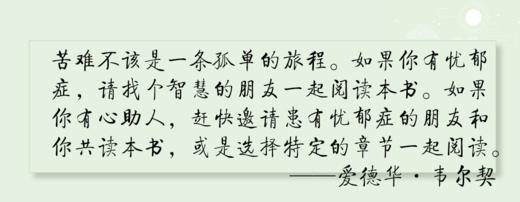 苦难不该是一条孤单的旅程。如果你有忧郁
症，请找个智慧的朋友一起阅读本书。如果
你有心助人，赶快邀请患有忧郁症的朋友和
你共读本书，或是选择特定的章节一起阅读。
——爱德华·韦尔契